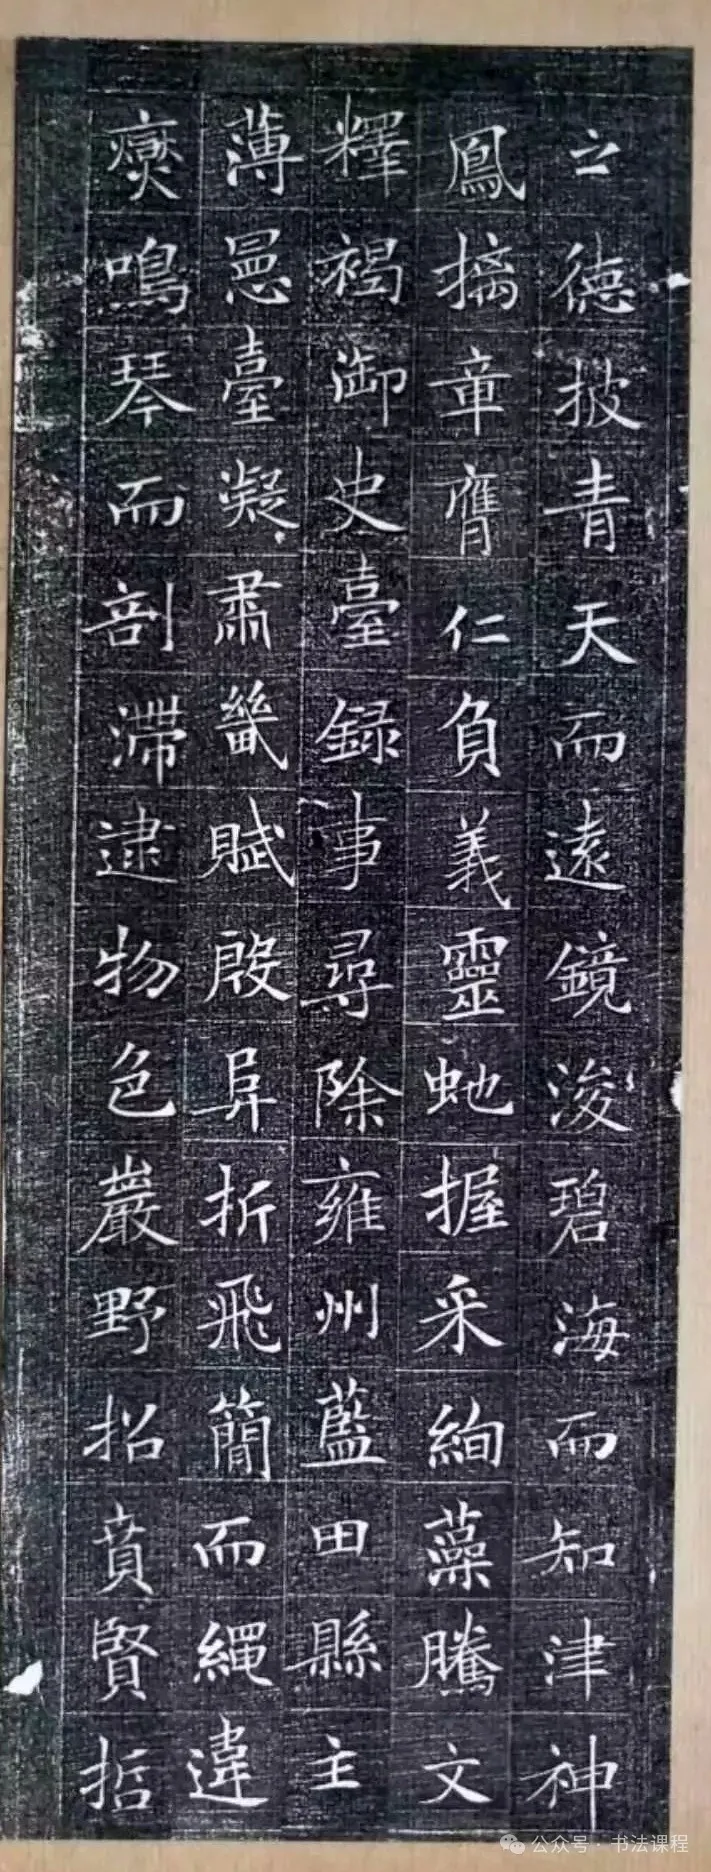 之德披青天而遠鏡浚碧海而知津神
鳳摛章膺仁負義靈虵握采絢藻騰文
釋褐御史臺録事尋除雍州藍田縣主
薄臺凝肅畿賦殷阜折飛簡而繩違
鳴琴而剖滯逮物色巖野招賁賢哲
公众号·书法课程